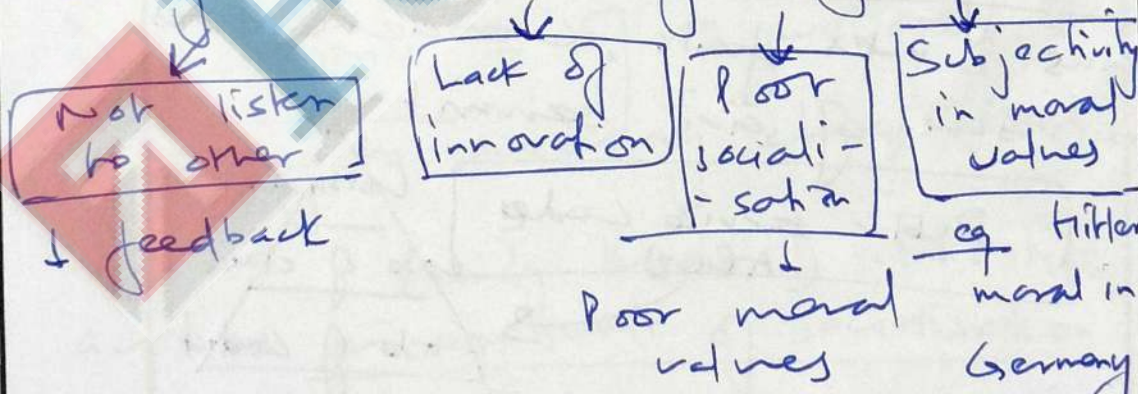 Not listen
to other
↓ feedback
Lack of
innovation
Poor
sociali-
-sation
↓
Poor moral
values
Subjectivity
in moral
values
eg Hitler
moral in
Germany